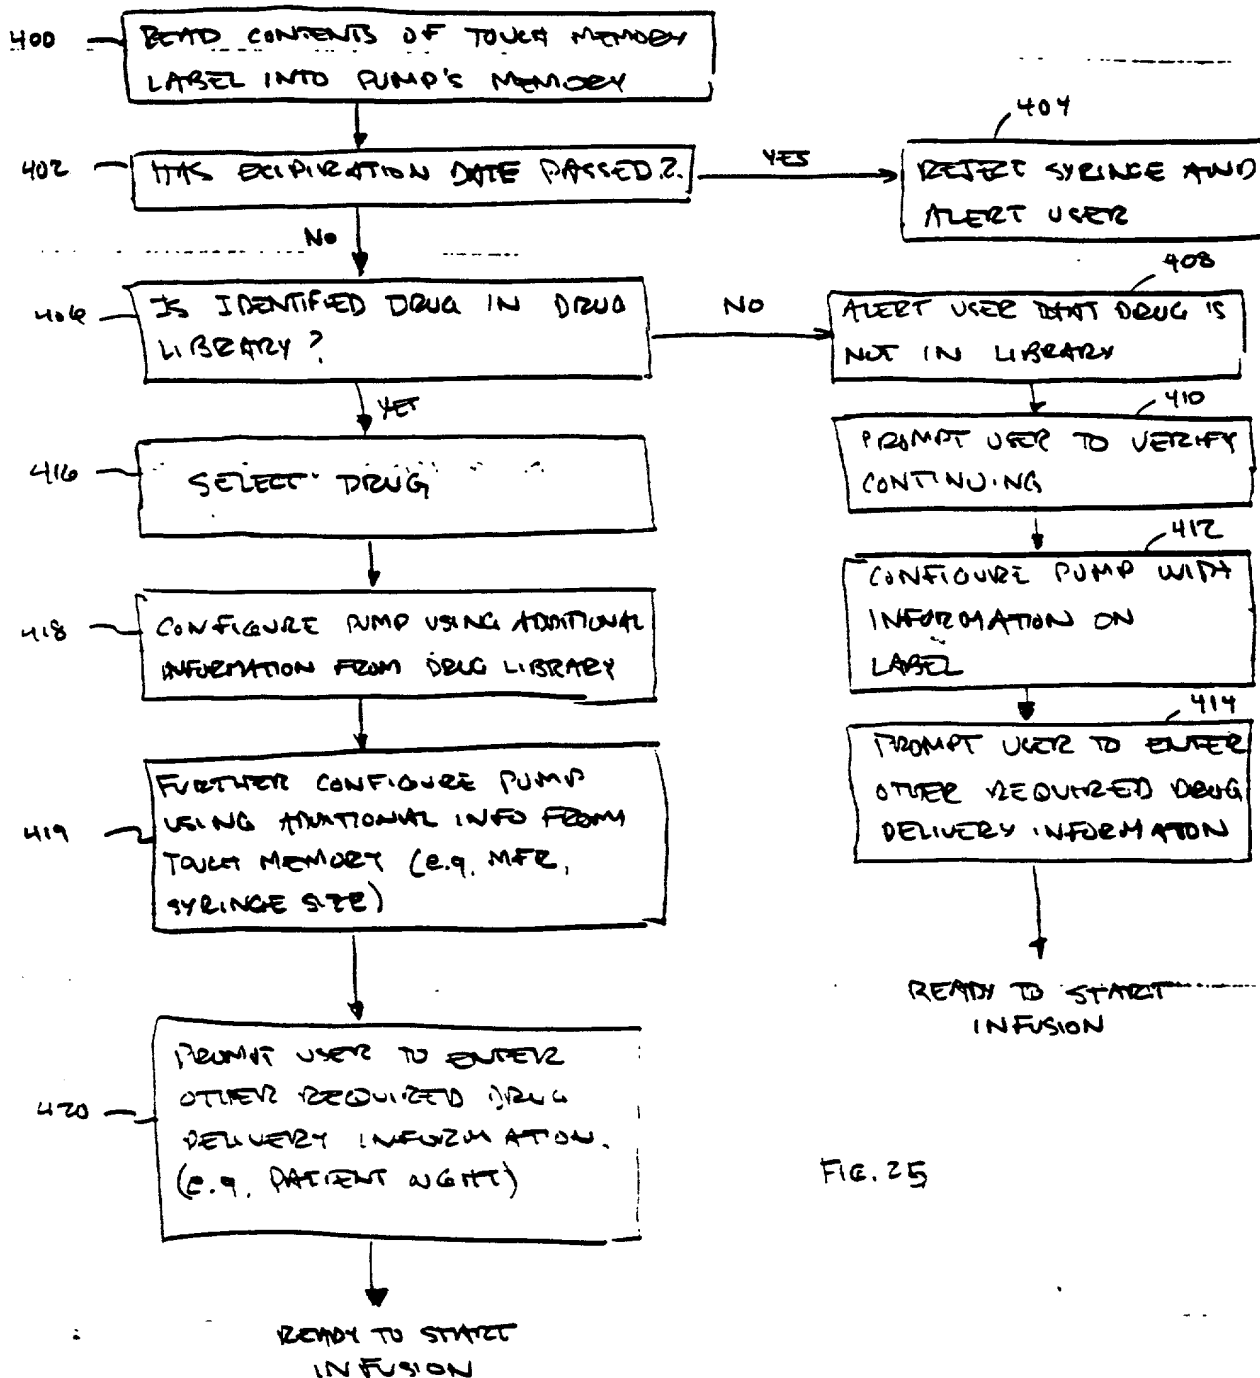 400
READ CONTENTS OF TOUCH MEMORY
LABEL INTO PUMP'S MEMORY
402
HAS EXIPIRATION DATE PASSED?
YES
404
REJECT SYRINGE AND
ALERT USER
NO
406
IS IDENTIFIED DRUG IN DRUG
LIBRARY?
NO
408
ALERT USER THAT DRUG IS
NOT IN LIBRARY
YES
410
PROMPT USER TO VERIFY
CONTINUING
416
SELECT DRUG
412
CONFIGURE PUMP WITH
INFORMATION ON
LABEL
418
CONFIGURE PUMP USING ADDITIONAL
INFORMATION FROM DRUG LIBRARY
414
PROMPT USER TO ENTER
OTHER REQUIRED DRUG
DELIVERY INFORMATION
419
FURTHER CONFIGURE PUMP
USING ADDITIONAL INFO FROM
TOUCH MEMORY (e.g. MFR,
SYRINGE SIZE)
READY TO START
INFUSION
420
PROMPT USER TO ENTER
OTHER REQUIRED DRUG
DELIVERY INFORMATION.
(e.g. PATIENT WGHT)
FIG. 25
READY TO START
INFUSION